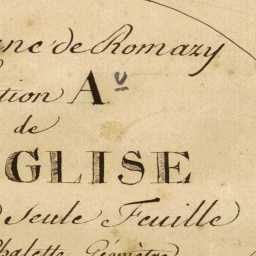 anc de Romazy
tion A^v
de
GLISE
Seule Feuille
Chalette Géomètre